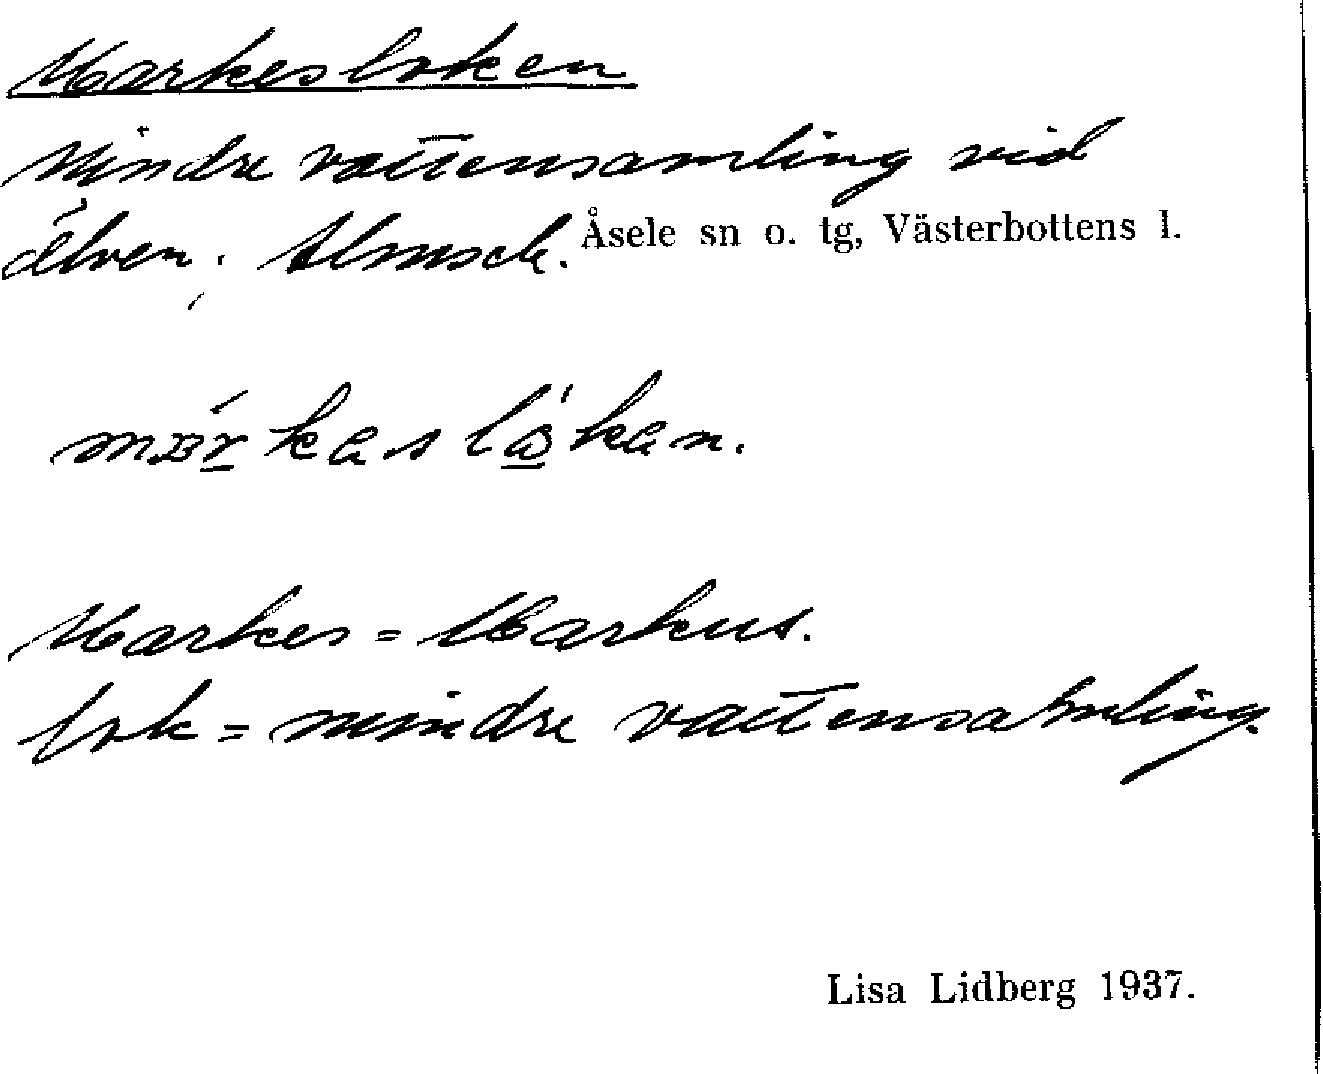 Markesloken
Mindre vattensamling vid
älven.
Åsele sn o. tg, Västerbottens l.
Markes = Markus.
lok = mindre vattensamling.
Lisa Lidberg 1937.